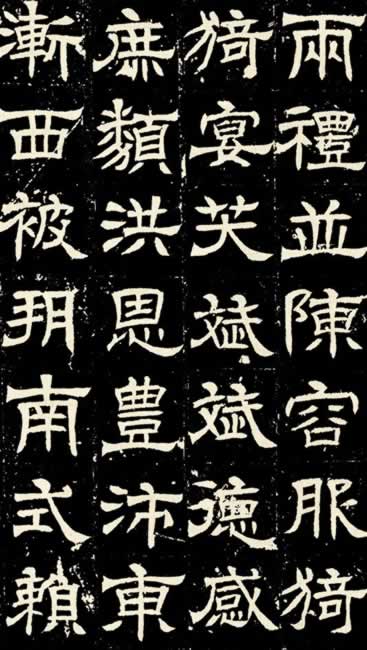 兩禮並陳容服猗
猗宴笑斌斌德感
庶類洪恩豊沛東
漸西被朔南式賴